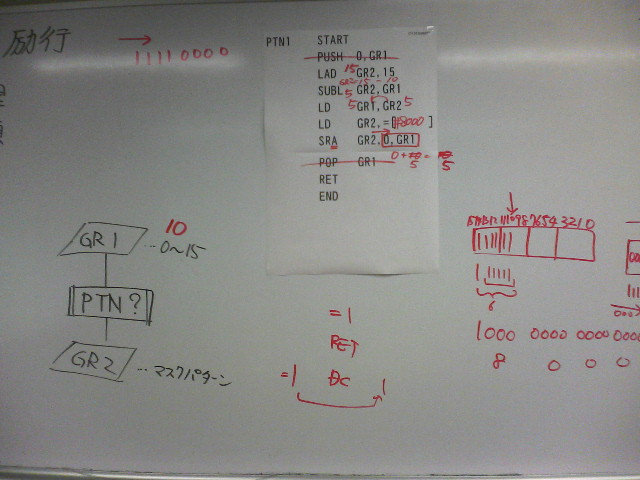 励行
→ 11110000
PTN1 START
PUSH 0,GR1
LAD 15 GR2,15
SUBL 5 GR2,GR1
LD 5 GR1,GR2 5
LD GR2,=[#8000]
SRA GR2,0,GR1
POP GR1
RET
END
10
GR1 ‥0~15
PTN?
GR2 ‥マスクパターン
=1
RET
=1 DC 1
9876543210
6
1000 0000 0000 0000
8 0 0 0